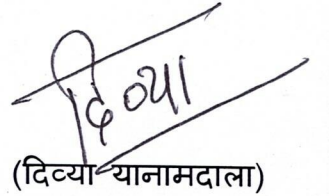 दिव्या
(दिव्या यानामदाला)